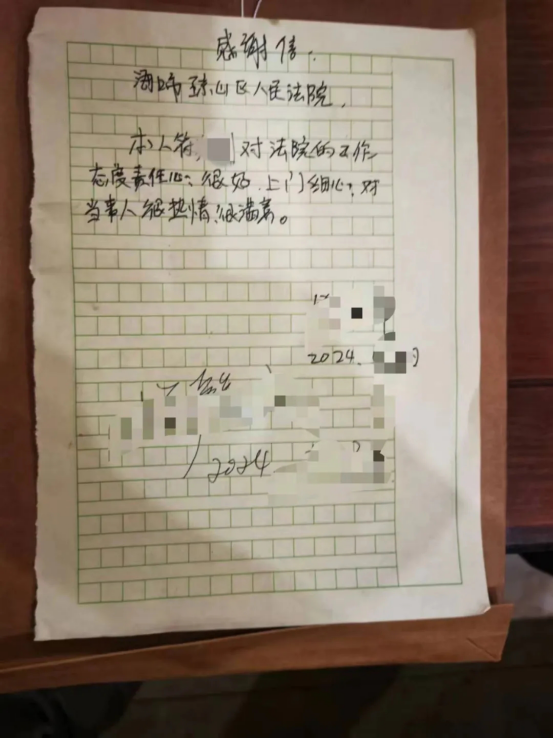 感谢信.
海口市琼山区人民法院,
本人符 对法院的工作,
态度责任心:很好.上门细心,对
当事人很热情,很满意。
2024.
2024